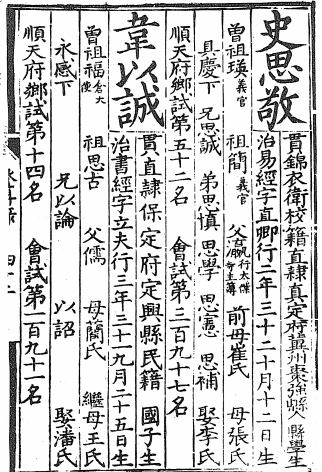 史思敬
貫錦衣衛校籍直隸真定府冀州棗強縣人縣學生
治易經字直卿行二年三十二十月十二日生
曾祖瑛義官 祖簡義官 父瀛行太僕寺主簿 前母崔氏 母張氏
具慶下 兄思誠 弟思慎 思學 思憲 思補 娶李氏
順天府鄉試第五十二名 會試第二百九十七名
韋以誠
貫直隸保定府定興縣民籍 國子生
治書經字立夫行三年三十一九月二十五日生
曾祖福倉大使 祖思古 父儒 母蘭氏 繼母王氏
永感下 兄以論 以詔 娶潘氏
順天府鄉試第十四名 會試第二百九十一名